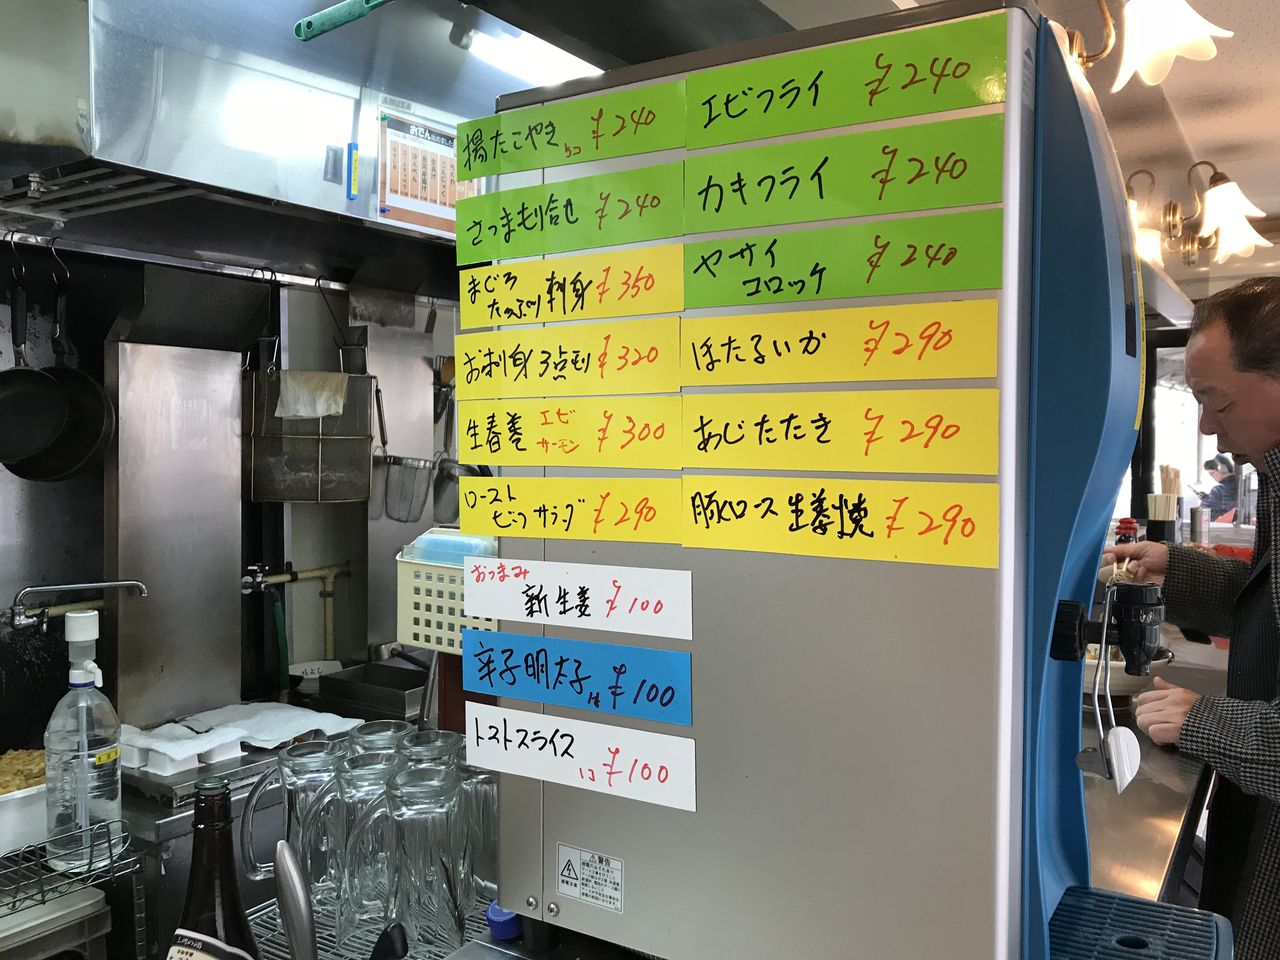 おでん始めました
揚たこやき 5コ ¥240
さつま揚盛合せ ¥240
まぐろ
たっぷり刺身 ¥350
お刺身3点盛 ¥320
生春巻 エビ
サーモン ¥300
ロースト
ビーフサラダ ¥290
おつまみ
新生姜 ¥100
辛子明太子 ¥100
トマトスライス
1コ ¥100
エビフライ ¥240
カキフライ ¥240
ヤサイ
コロッケ ¥240
ほたるいか ¥290
あじたたき ¥290
豚ロース生姜焼 ¥290
警告